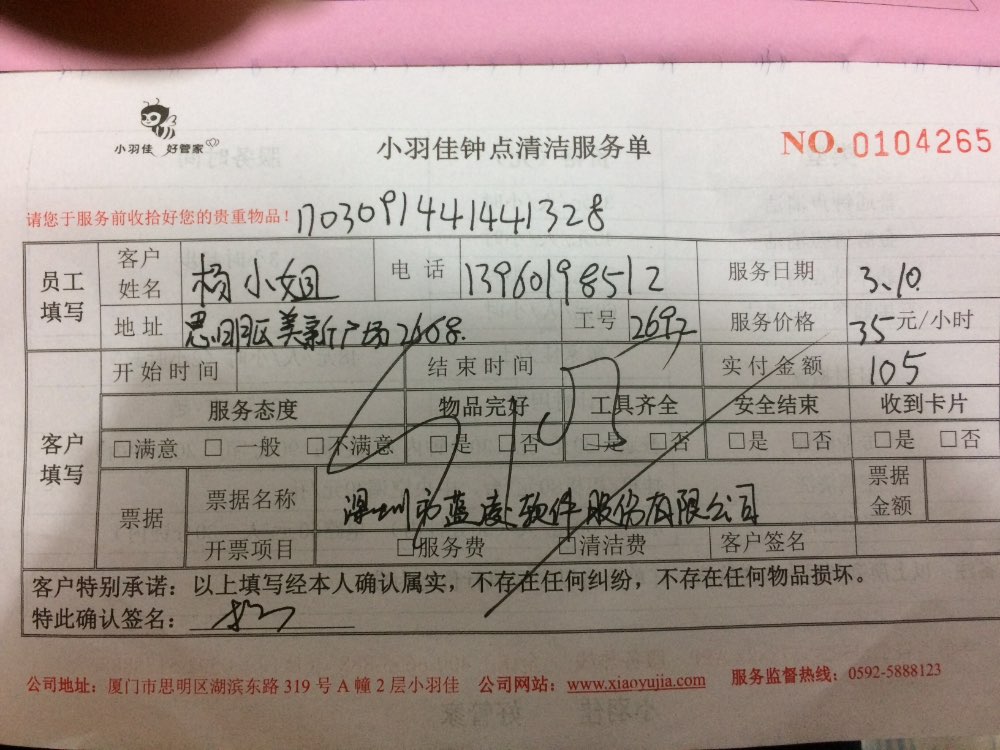 小羽佳 好管家
小羽佳钟点清洁服务单
NO. 0104265
请您于服务前收拾好您的贵重物品！ 1703091441441328
员工填写 客户姓名 杨小姐 电话 13960198512 服务日期 3.10
地址 思明区美新广场2608. 工号 2697 服务价格 35元/小时
客户填写 开始时间 结束时间 实付金额 105
服务态度 物品完好 工具齐全 安全结束 收到卡片
□满意 □一般 □不满意 □是 □否 □是 □否 □是 □否 □是 □否
票据 票据名称 深圳市蓝凌软件股份有限公司 票据金额
开票项目 □服务费 □清洁费 客户签名
客户特别承诺：以上填写经本人确认属实，不存在任何纠纷，不存在任何物品损坏。
特此确认签名：
公司地址：厦门市思明区湖滨东路 319 号 A 幢 2 层小羽佳 公司网站：www.xiaoyujia.com 服务监督热线：0592-5888123